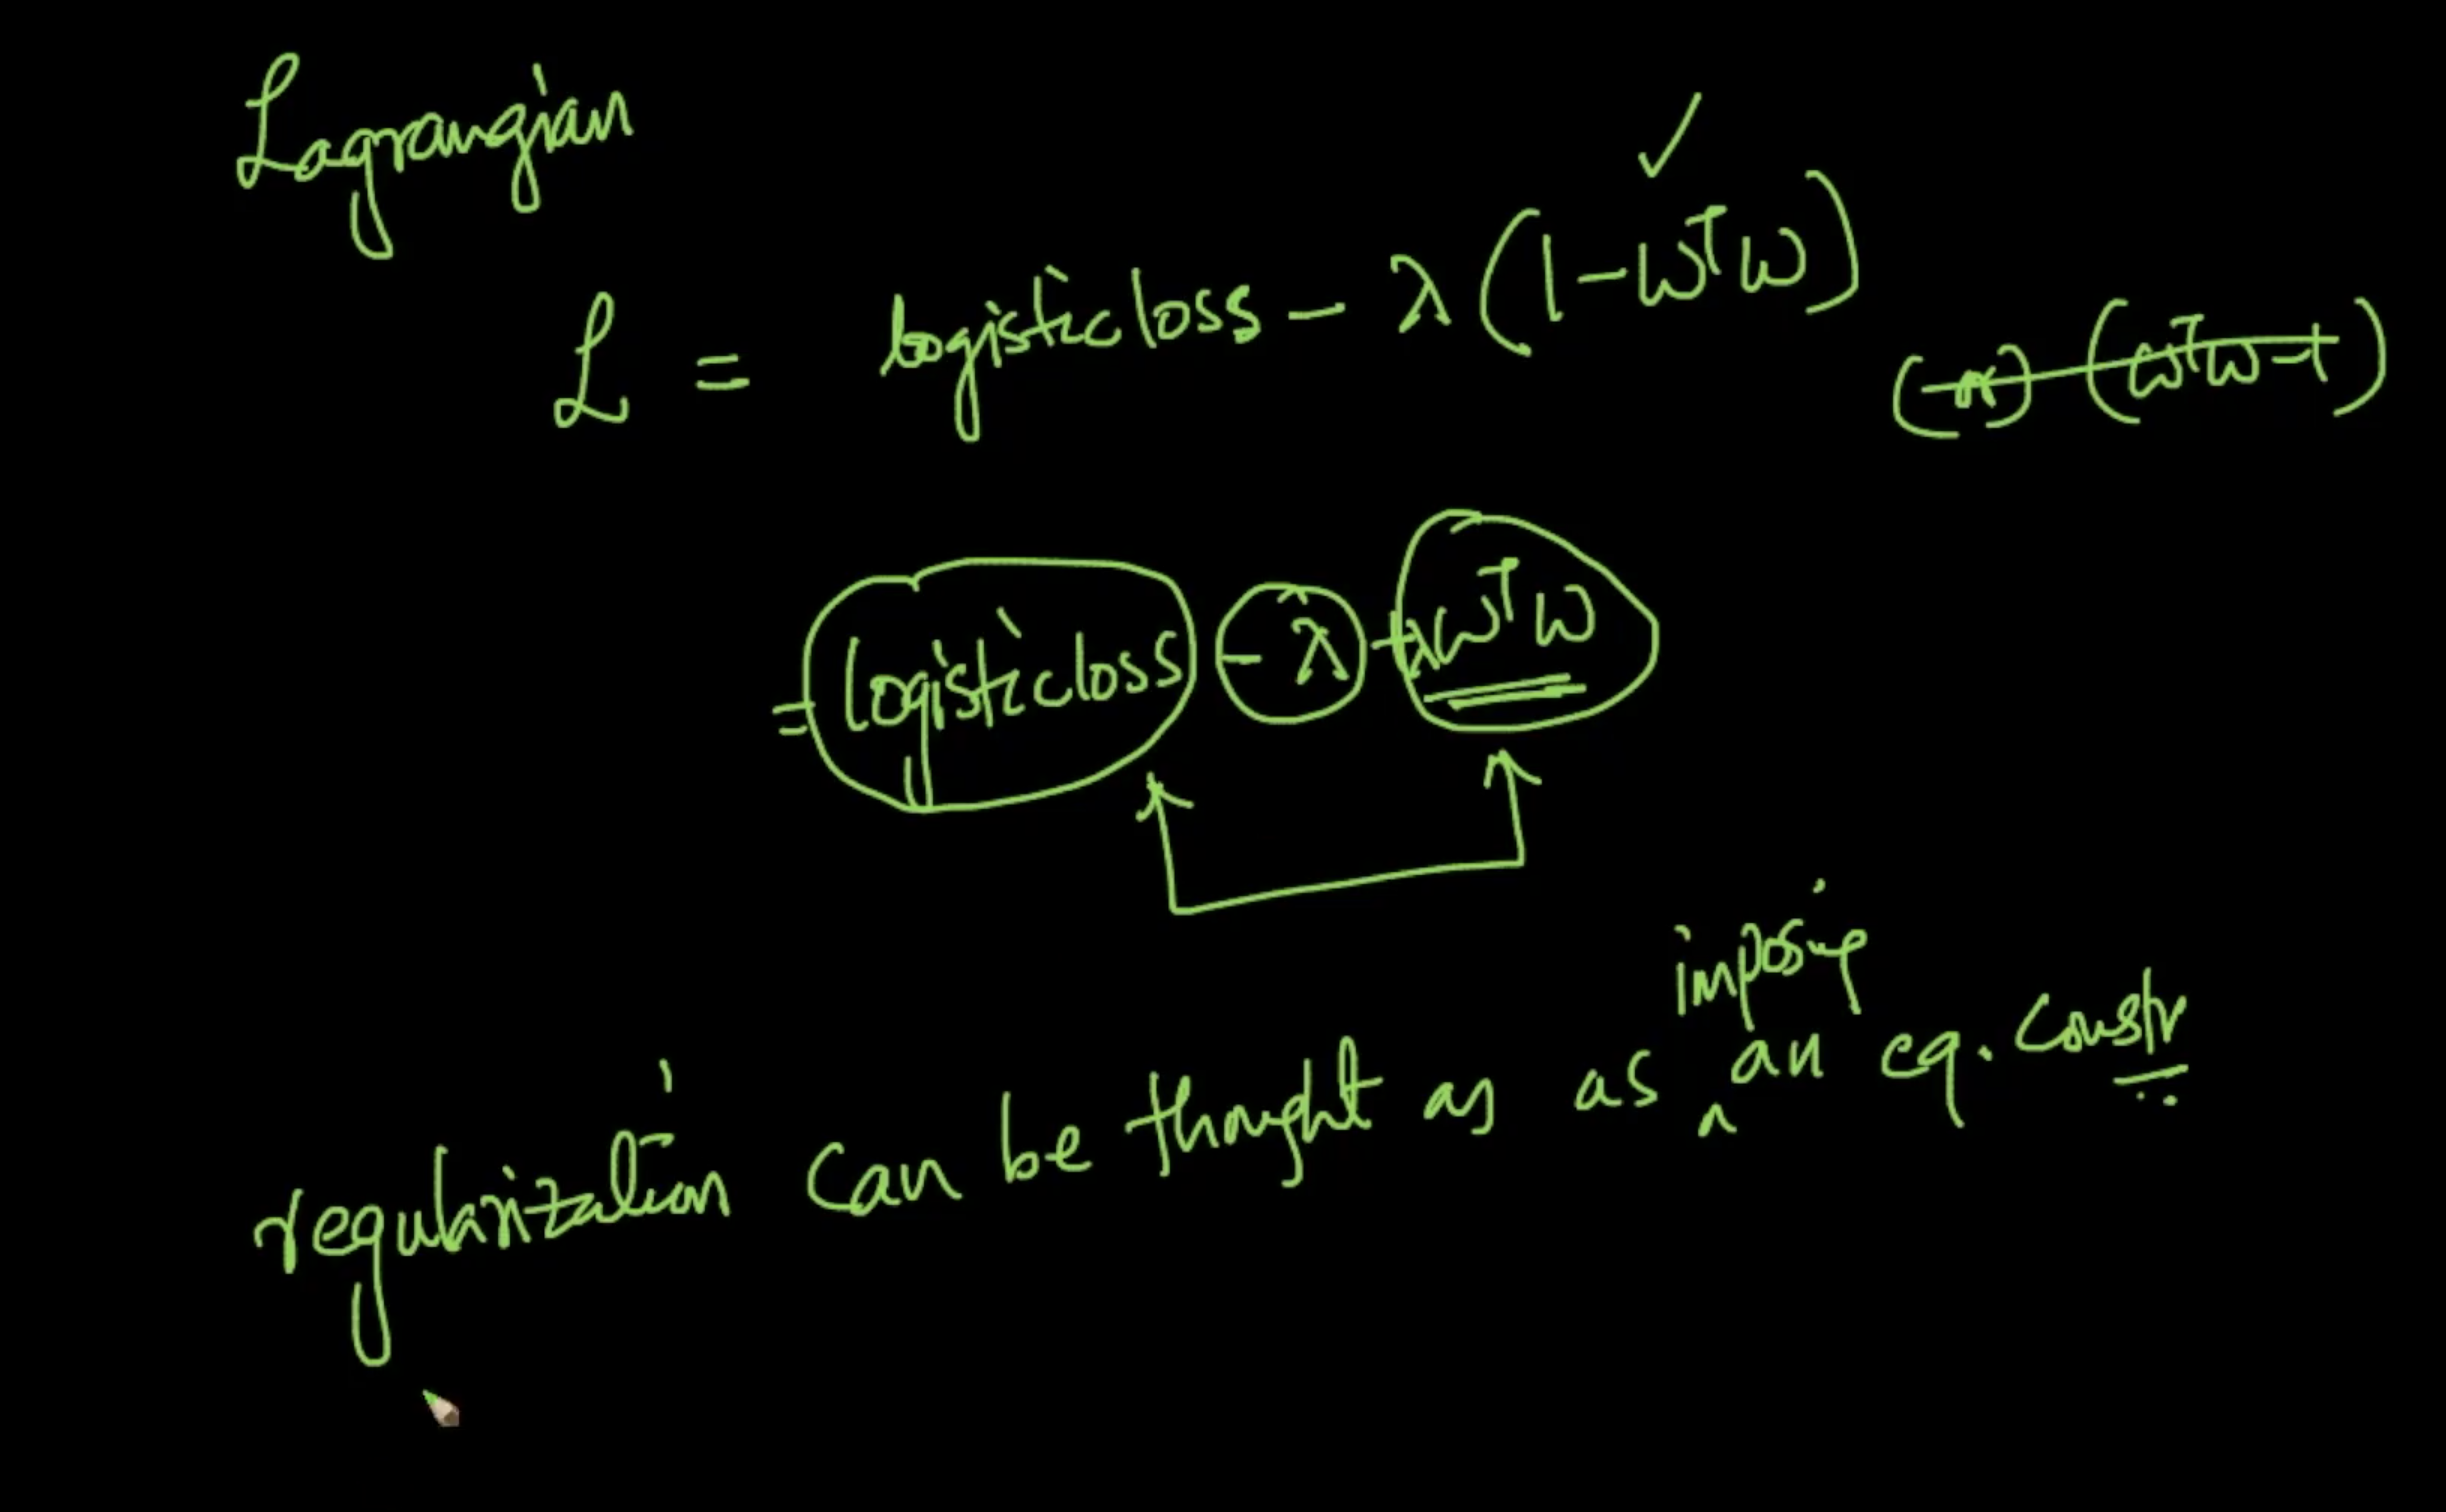 Lagrangian
ℒ = logistic loss - λ(1 - wᵀw)
(-λ) (wᵀw - 1)
= logistic loss - λ + λwᵀw
imposing
regularization can be thought as as ^ an eq. constr